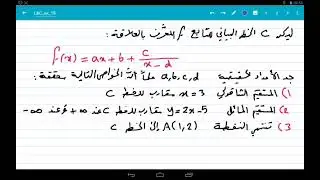 ليكن C الخط البياني للتابع f المعرّف بالعلاقة:
f(x) = ax + b + c/(x - d)
جد الأعداد الحقيقية a, b, c, d علماً أنّ الخواص التالية محققة:
1) المستقيم الشاقولي x = 3 مقارب للخط C
2) المستقيم المائل y = 2x - 5 مقارب للخط C عند +∞ وعند -∞
3) تنتمي النقطة A(1,2) إلى الخط C